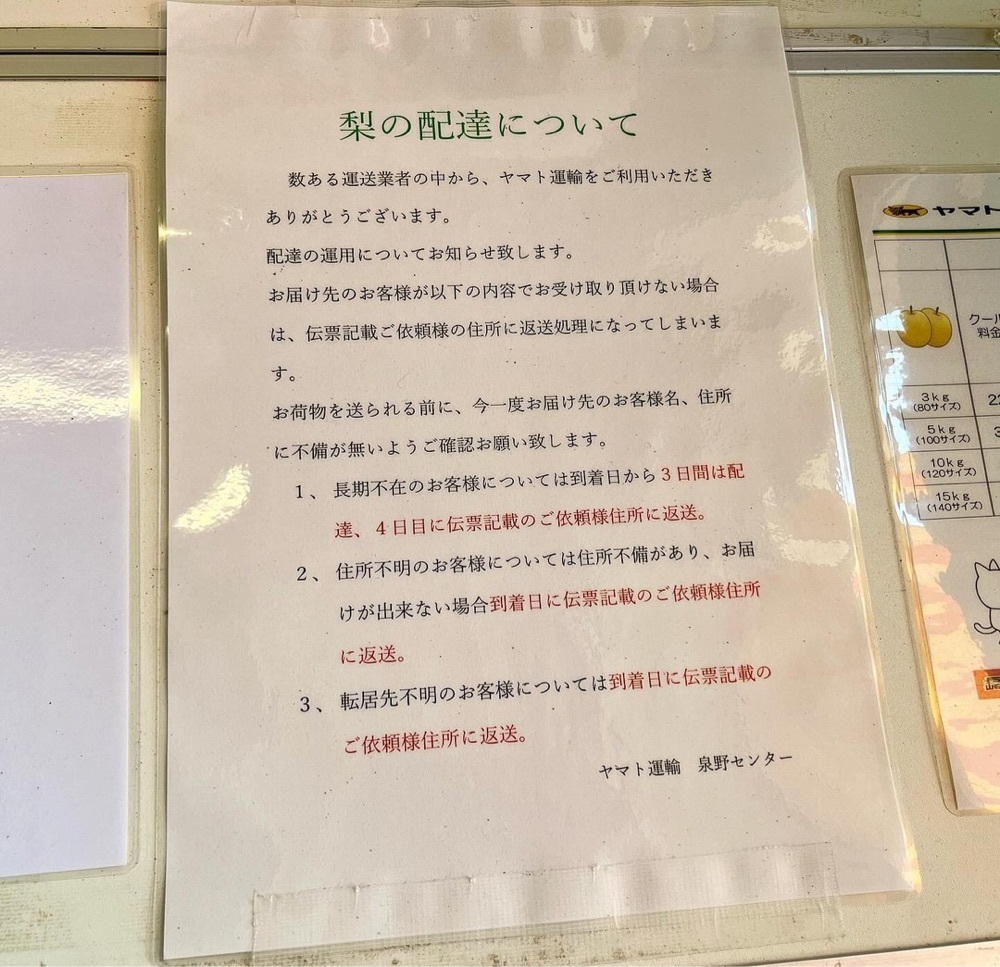 梨の配達について
数ある運送業者の中から、ヤマト運輸をご利用いただき
ありがとうございます。
配達の運用についてお知らせ致します。
お届け先のお客様が以下の内容でお受け取り頂けない場合
は、伝票記載ご依頼様の住所に返送処理になってしまいま
す。
お荷物を送られる前に、今一度お届け先のお客様名、住所
に不備が無いようご確認お願い致します。
1、長期不在のお客様については到着日から3日間は配
達、4日目に伝票記載のご依頼様住所に返送。
2、住所不明のお客様については住所不備があり、お届
けが出来ない場合到着日に伝票記載のご依頼様住所
に返送。
3、転居先不明のお客様については到着日に伝票記載の
ご依頼様住所に返送。
ヤマト運輸 泉野センター
ヤマト
クール
料金
3kg
(80サイズ)
5kg
(100サイズ)
10kg
(120サイズ)
15kg
(140サイズ)